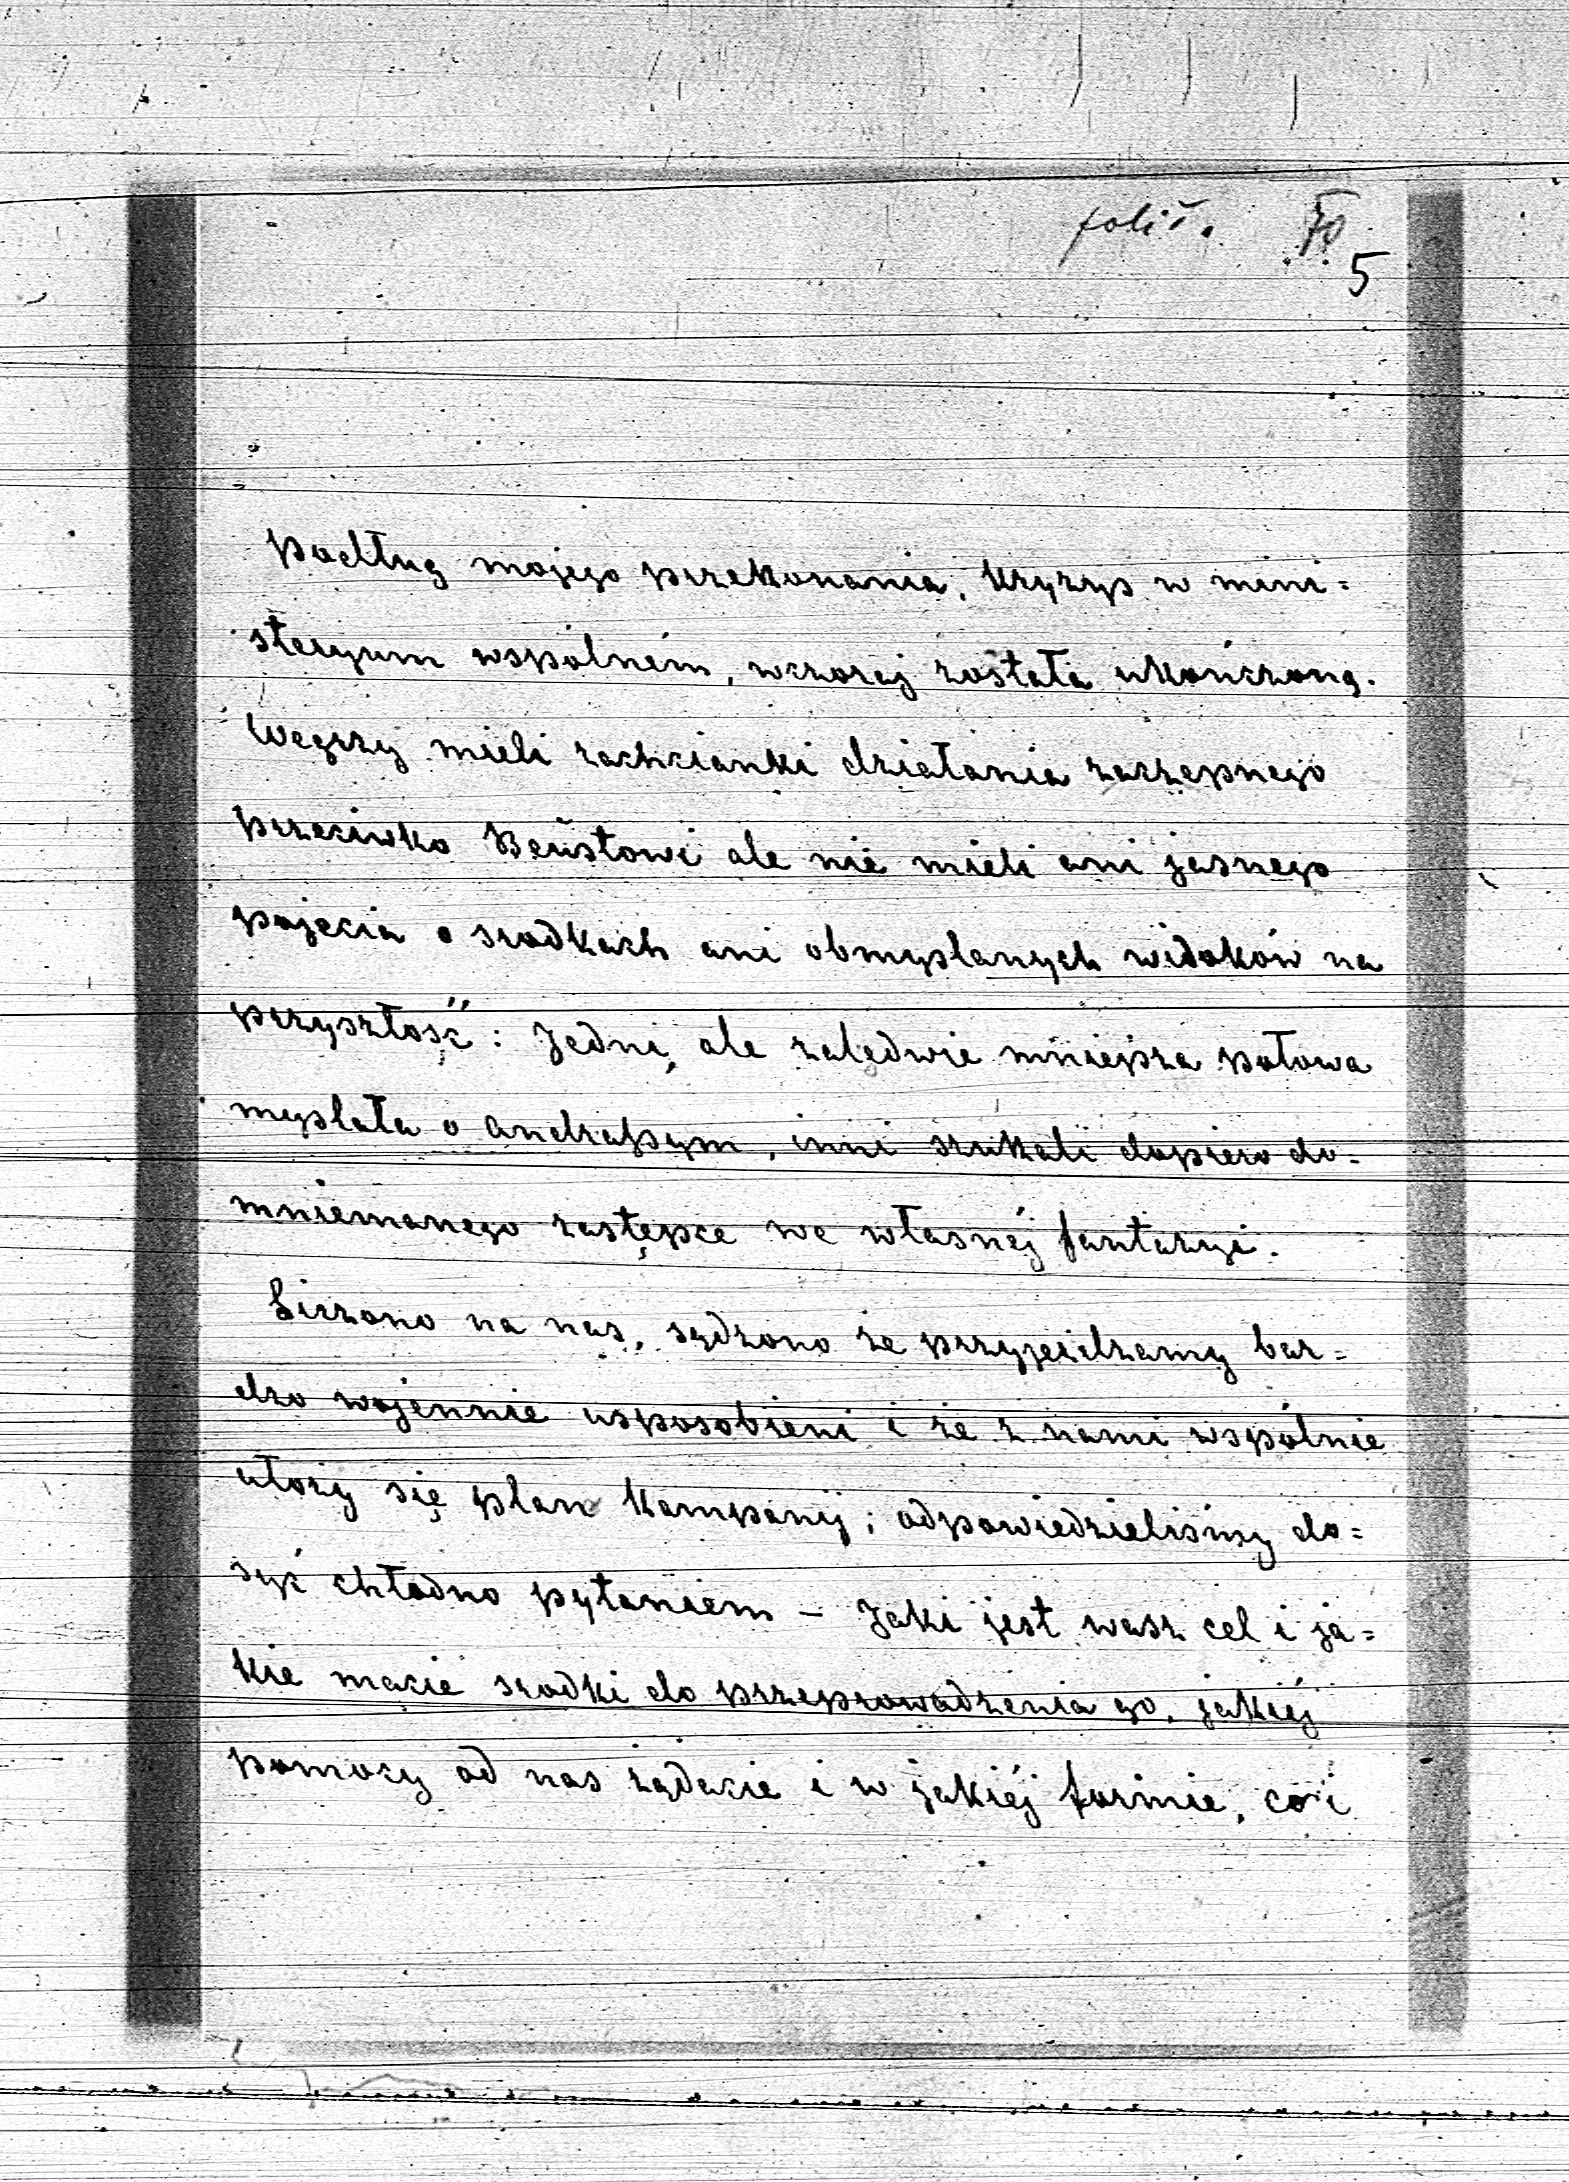 5
Podług mojego przekonania, kryzys w mini=
steryum wspólném, wczoraj została ukończoną.
Węgrzy mieli zachcianki działania zaczepnego
przeciwko Beustowi ale nie mieli ani jasnego
pojęcia o srodkach ani obmyslanych widoków na
przyszłość: Jedni, ale zaledwie mniejsza połowa
myslała o Andrassym, inni szukali dopiero do=
mniemanego zastępce we własnéj fantazyi.
Liczono na nas, sądzono że przyjeżdzamy bar=
dzo wojennie usposobieni i że z nami wspólnie
ułoży się plan kampanij; odpowiedzieliśmy do=
syć chłodno pytaniem – Jaki jest wasz cel i ja=
kie macie srodki do przeprowadzenia go, jakiéj
pomocy od nas żądacie i w jakiéj formie, co i